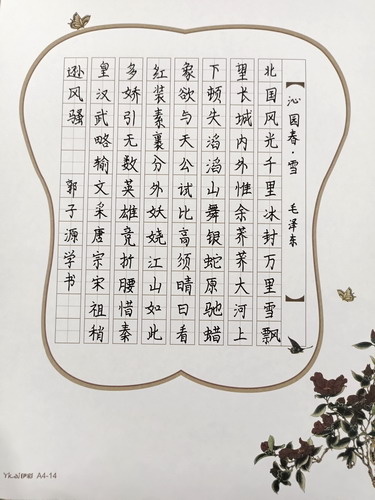 【沁园春·雪 毛泽东】
北国风光千里冰封万里雪飘
望长城内外惟余莽莽大河上
下顿失滔滔山舞银蛇原驰蜡
象欲与天公试比高须晴日看
红装素裹分外妖娆江山如此
多娇引无数英雄竞折腰惜秦
皇汉武略输文采唐宗宋祖稍
逊风骚 郭子源学书
A4-14